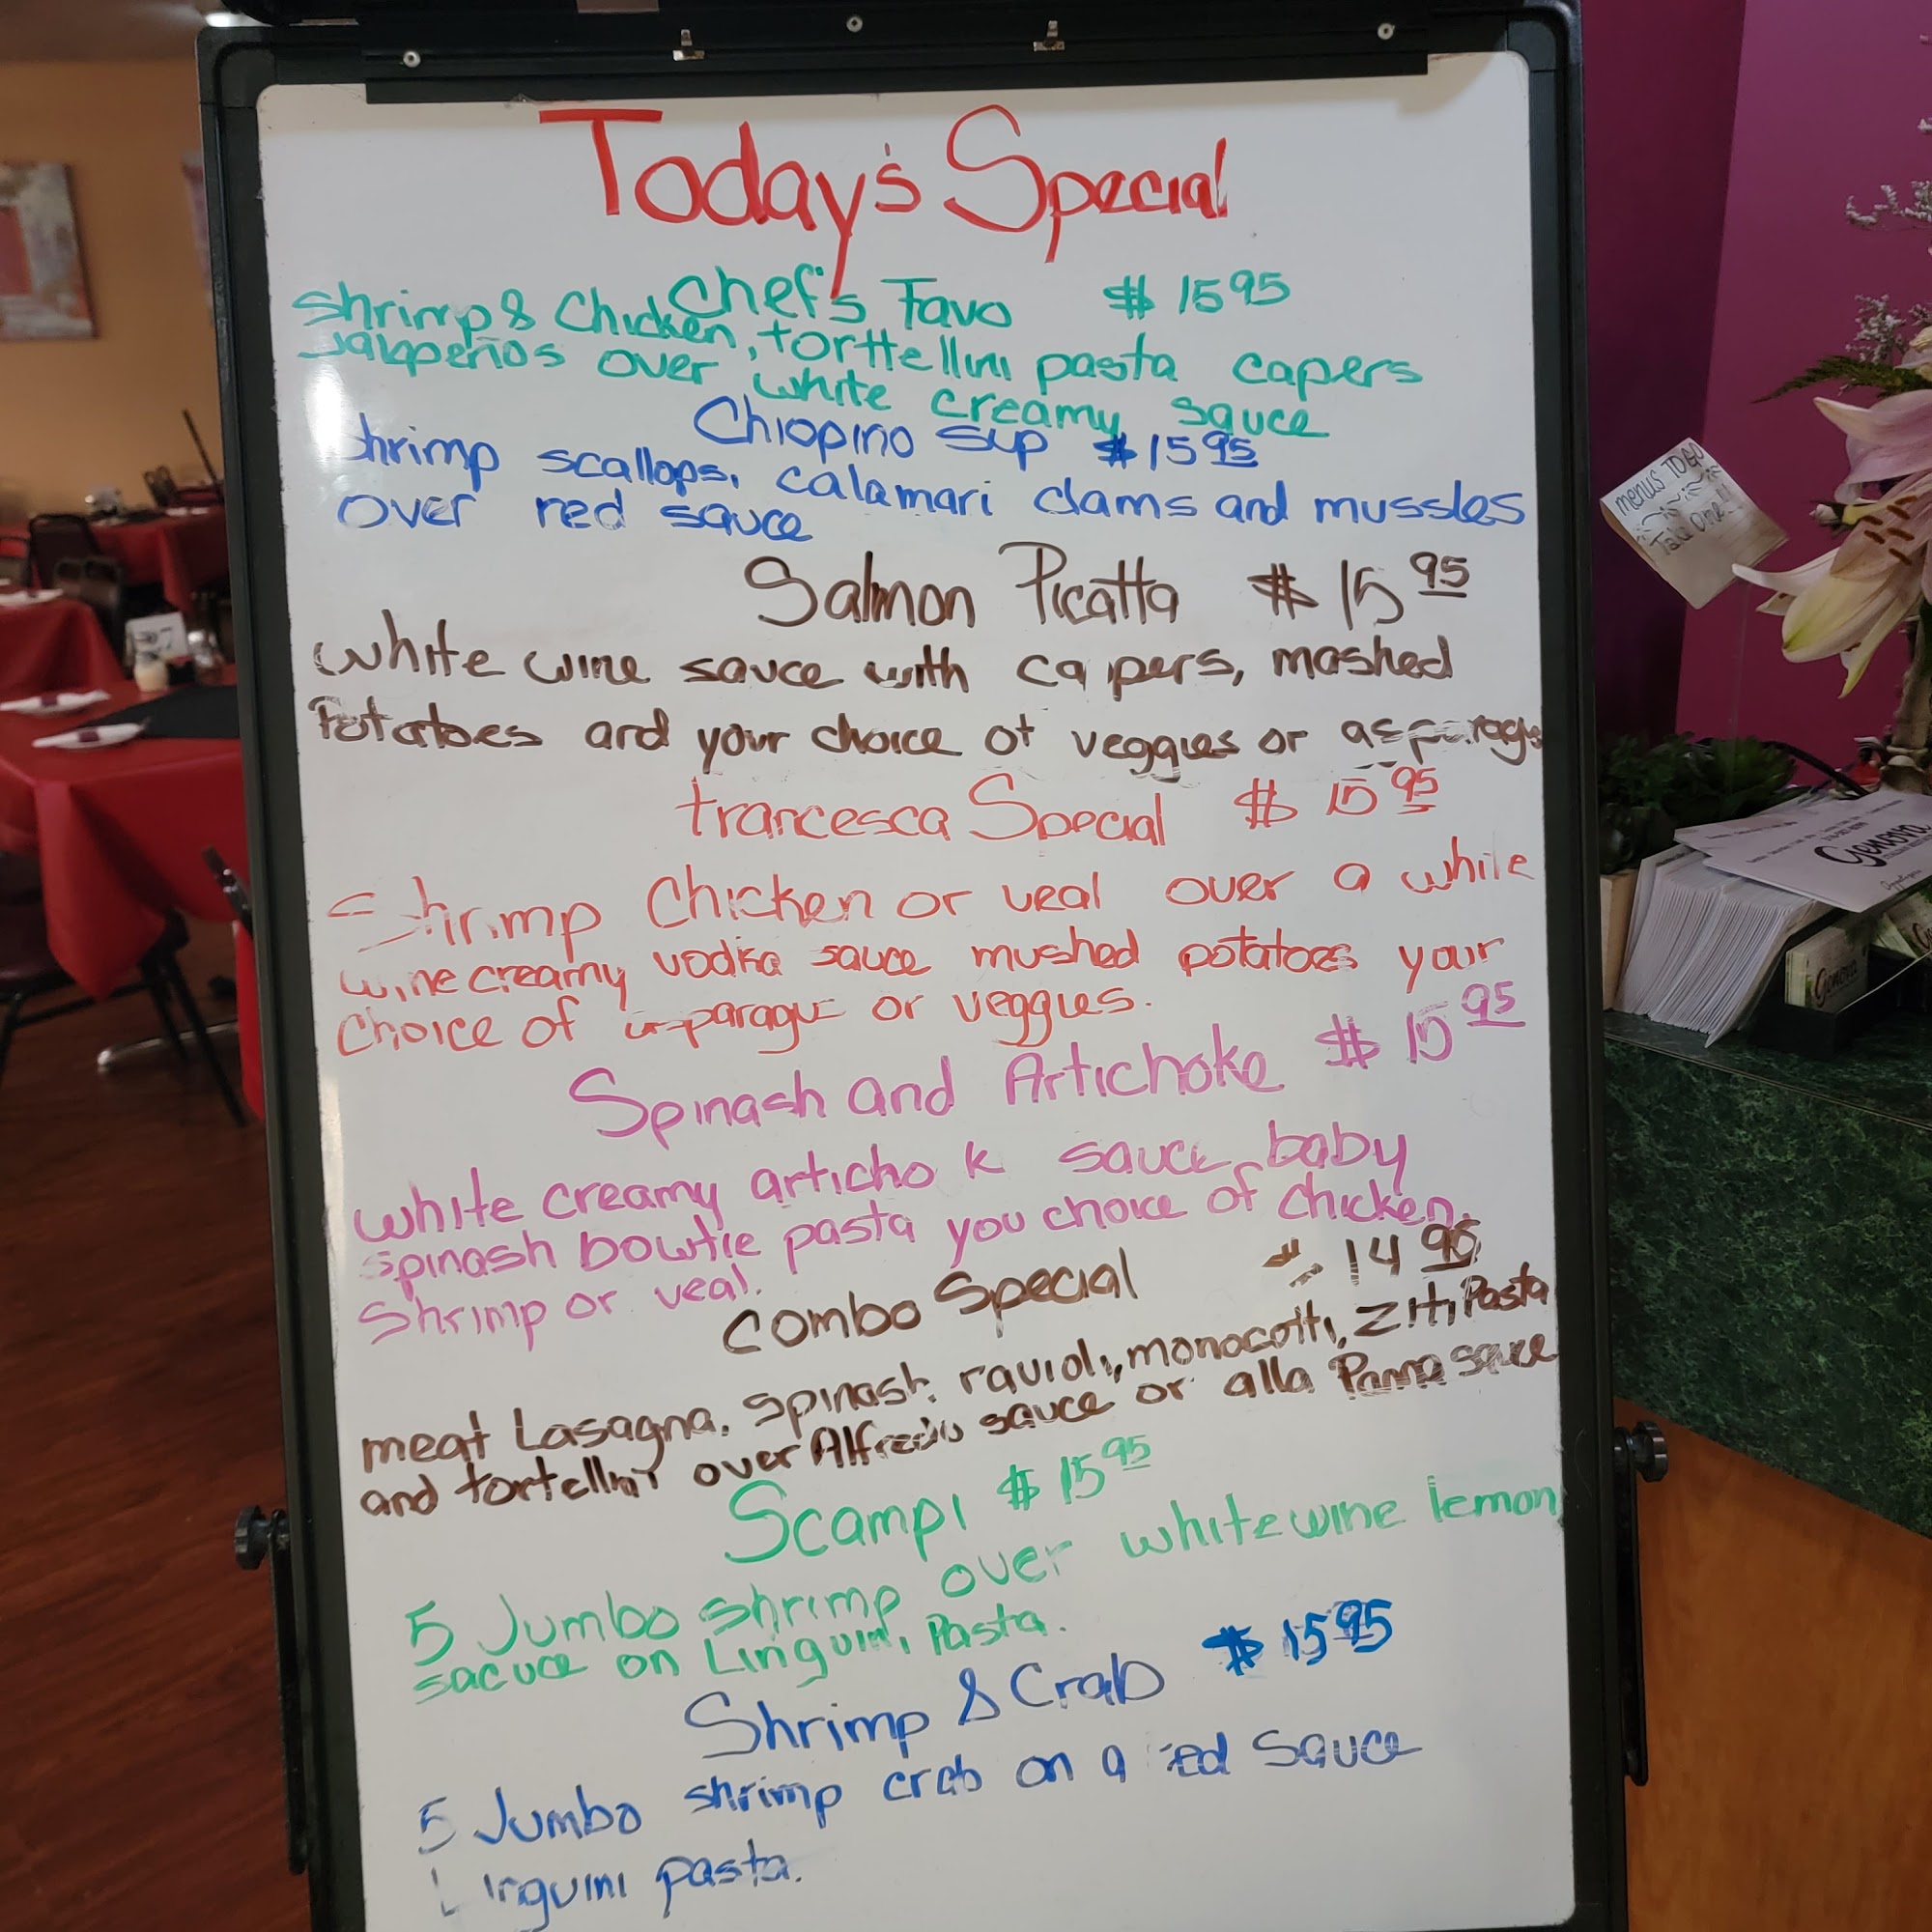 Today's Special
Chef's Favo $ 15 95
Shrimp & Chicken, torttellini pasta capers
Jalapeños over white creamy sauce
Chiopino Sup $ 15 95
Shrimp scallops, calamari clams and mussles
over red sauce
Salmon Picatta $ 15 95
White wine sauce with capers, mashed
Potatoes and your choice of veggies or asparagus
francesca Special $ 15 95
Shrimp Chicken or veal over a while
wine creamy vodka sauce mushed potatoes your
Choice of asparagus or veggies.
Spinash and Artichoke $ 15 95
white creamy artichok sauce baby
spinash bowtie pasta you choice of chicken,
Shrimp or veal.
Combo Special $ 14 95
meat Lasagna, Spinash, ravioli, monocotti, Ziti Pasta
and tortellini over Alfredo sauce or alla Panna sauce
Scampi $ 15 95
5 Jumbo shrimp over white wine lemon
sacuce on Linguini Pasta.
Shrimp & Crab $ 15 95
5 Jumbo shrimp crab on a red Sauce
Linguini pasta.
menus TO GO
Take One!!
Genova
Genova